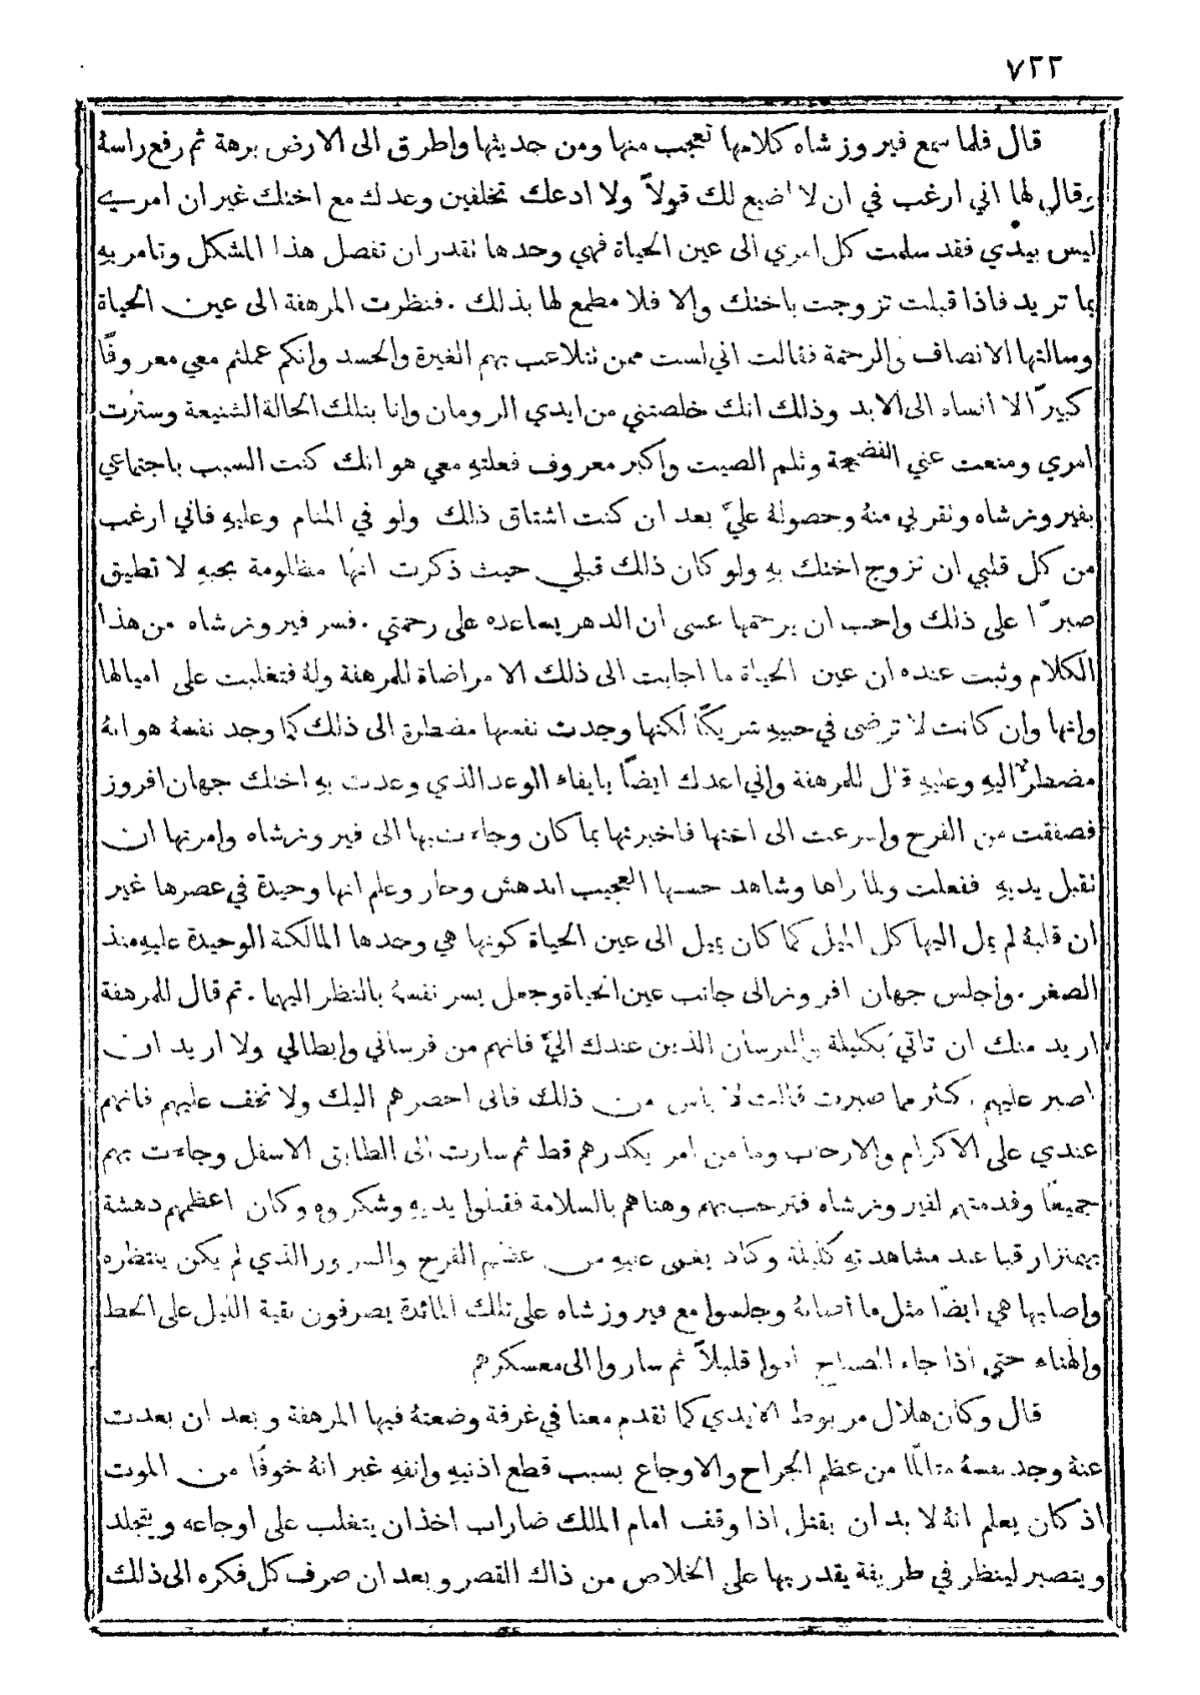 ٧٢٢
قال فلما سمع فيروز شاه كلامها تعجب منها ومن حديثها واطرق الى الارض برهة ثم رفع راسهُ
وقال لها اني ارغب في ان لا اضيع لك قولاً ولا ادعك تخلفين وعدك مع اختك غير ان امري
ليس بيدي فقد سلمت كل امري الى عين الحياة فهي وحدها تقدر ان تفصل هذا المشكل وتامر بهِ
بما تريد فاذا قبلت تزوجت باختك والا فلا مطمع لها بذلك . فنظرت المرهفة الى عين الحياة
وسالتها الانصاف والرحمة فقالت اني لست ممن تتلاعب بهم الغيرة والحسد وانكم عملتم معي معروفًا
كبيرًا لا انساه الى الابد وذلك انك خلصتني من ايدي الرومان وانا بتلك الحالة الشنيعة وسترت
امري ومنعت عني الفضيحة وثلم الصيت واكبر معروف فعلتهِ معي هو انك كنت السبب باجتماعي
بفيروزشاه وتقربي منهُ وحصولهُ عليَّ بعد ان كنت اشتاق ذلك ولو في المنام وعليهِ فاني ارغب
من كل قلبي ان تزوج اختك بهِ ولو كان ذلك قبلي حيث ذكرت انها مظلومة بحبهِ لا تطيق
صبرًا على ذلك واحب ان يرحمها عسى ان الدهر يساعده على رحمتي . فسر فيروزشاه من هذا
الكلام وثبت عنده ان عين الحياة ما اجابت الى ذلك الا مراضاة للمرهفة ولهُ فتغلبت على اميالها
وانها وان كانت لا ترضى في حبيبهِ شريكًا لكنها وجدت نفسها مضطرة الى ذلك كما وجد نفسهُ هو انهُ
مضطر اليهِ وعليهِ قال للمرهفة واني اعدك ايضًا بايفاء الوعد الذي وعدت بهِ اختك جهان افروز
فصفقت من الفرح واسرعت الى اختها فاخبرتها بما كان وجاءت بها الى فيروزشاه وامرتها ان
تقبل يديهِ ففعلت ولما راها وشاهد حسنها العجيب اندهش وحار وعلم انها وحيدة في عصرها غير
ان قلبهُ لم يمل اليها كل الميل كما كان يميل الى عين الحياة كونها هي وحدها المالكة الوحيدة عليهِ منذ
الصغر . واجلس جهان افروز الى جانب عين الحياة وجعل يسر نفسهُ بالنظر اليهما . ثم قال للمرهفة
اريد منك ان تاتي بكليلة والفرسان الذين عندك اليَّ فانهم من فرساني وابطالي ولا اريد ان
اصبر عليهم اكثر مما صبرت قالت لا باس من ذلك فاني احضرهم اليك ولا تخف عليهم فانهم
عندي على الاكرام والارحاب وما من امر يكدرهم قط ثم سارت الى الطابق الاسفل وجاءت بهم
جميعًا وقدمتهم لفيروزشاه فترحب بهم وهناهم بالسلامة فقبلوا يديهِ وشكروه وكان اعظمهم دهشة
بهمنزار قبا عند مشاهدتهِ كليلة وكاد يغمى عليهِ من عظم الفرح والسرور الذي لم يكن ينتظره
واصابها هي ايضًا مثل ما اصابهُ وجلسوا مع فيروزشاه على تلك المائدة يصرفون بقية الليل على الحظ
والهناه حتى اذا جاء الصباح ناموا قليلاً ثم ساروا الى معسكرهم
قال وكان هلال مربوط الايدي كما تقدم معنا في غرفة وضعتهُ فيها المرهفة وبعد ان بعدت
عنهُ وجد نفسهُ متالمًا من عظم الجراح والاوجاع بسبب قطع اذنيهِ وانفهِ غير انهُ خوفًا من الموت
اذ كان يعلم انهُ لا بد ان يقتل اذا وقف امام الملك ضاراب اخذ ان يتغلب على اوجاعه ويتجلد
ويتصبر لينظر في طريقة يقدر بها على الخلاص من ذاك القصر وبعد ان صرف كل فكره الى ذلك